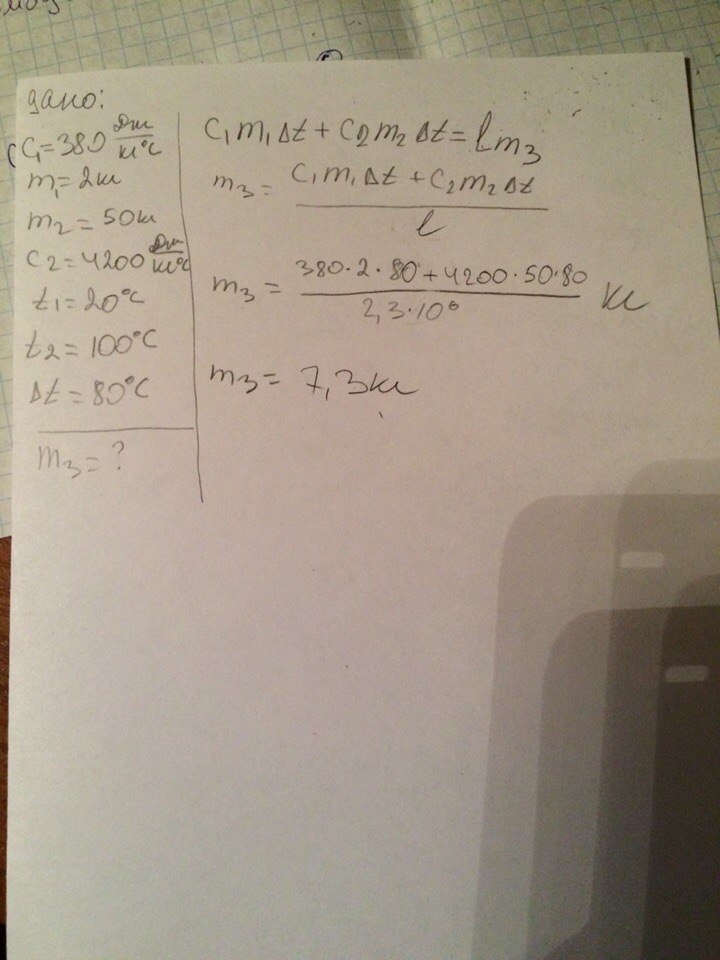 дано:
C₁=380 Дж/кг°C
m₁=2кг
m₂=50кг
C₂=4200 Дж/кг°C
t₁=20°C
t₂=100°C
Δt=80°C
m₃=?
C₁m₁Δt+C₂m₂Δt=Lm₃
m₃=(C₁m₁Δt+C₂m₂Δt)/L
m₃=(380·2·80+4200·50·80)/(2,3·10⁶) кг
m₃=7,3кг